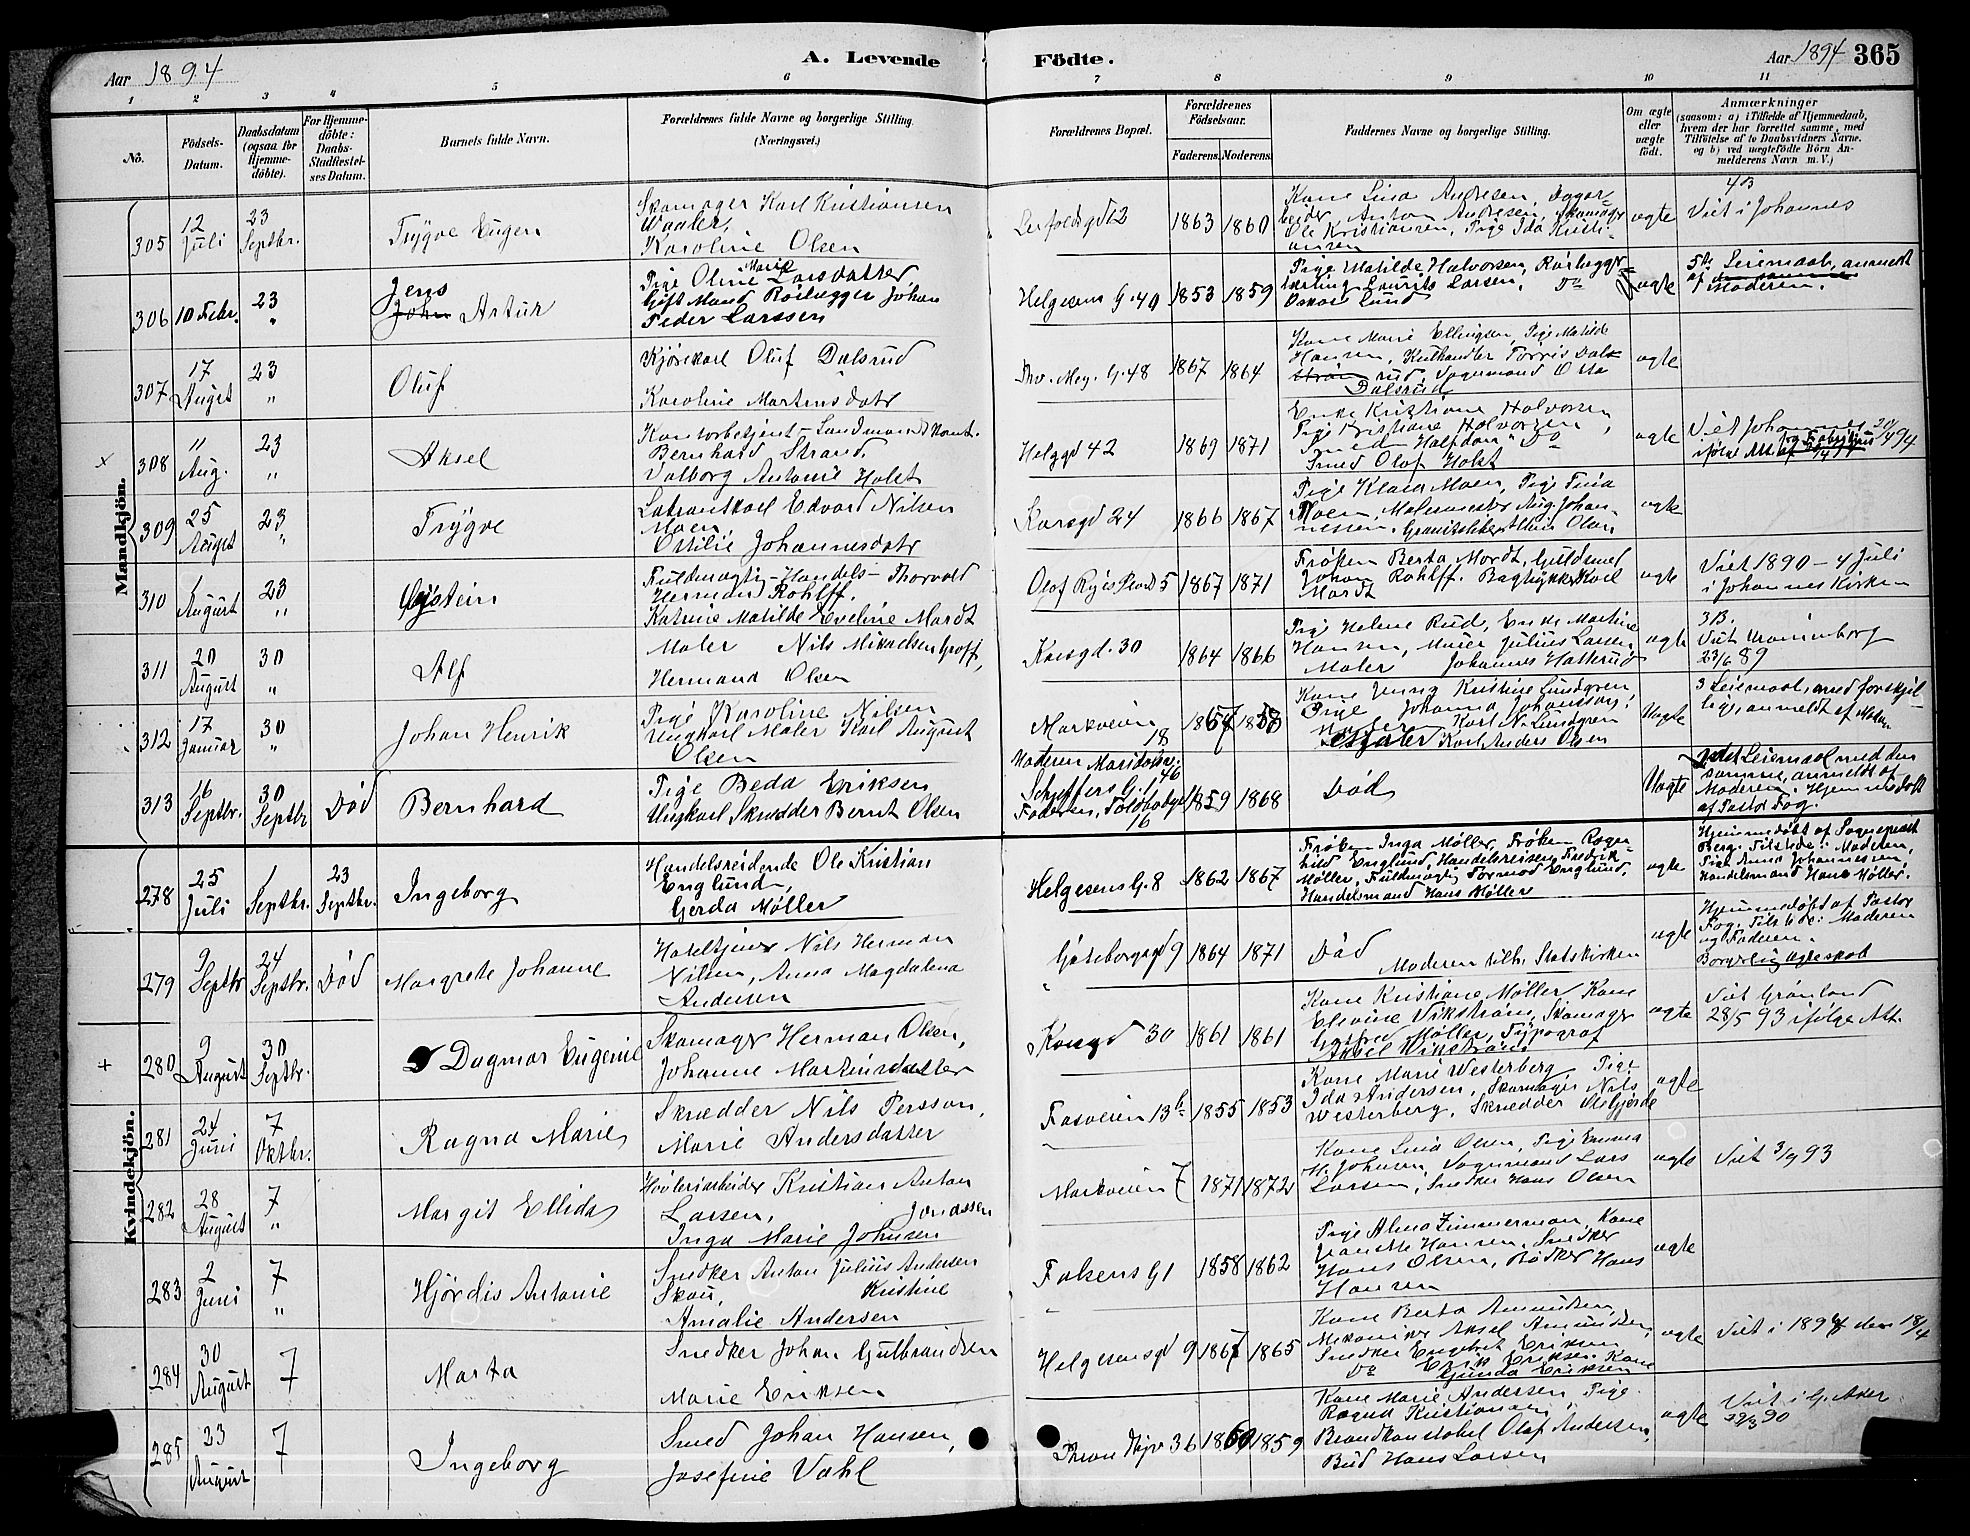 Aar 1894
A. Levende
Födte.
Aar 1894 365
1 2 3 4 5 6 7 8 9 10 11
No.
Födsels-
Datum.
Daabsdatum
(ogsaa for
Hjemme-
döbte).
For Hjemme-
döbte:
Daabs-
Stadfæstel-
ses Datum.
Barnets fulde Navn.
Forældrenes fulde Navne og borgerlige Stilling.
(Næringsvei.)
Forældrenes Bopæl.
Forældrenes
Födselsaar.
Faderens. Moderens.
Faddernes Navne og borgerlige Stilling.
Om ægte
eller
uægte
født.
Anmærkninger
(saasom: a) i Tilfælde af Hjemmedaab,
hvem der har forrettet samme, med
Tilföielse af to Daabsvidners Navne.
og b) ved uægtefödte Börn An-
melderens Navn m. V.)
Mandkjön.
305 12 Juli 23 Septbr. Trygve Eugen
Skomager Karl Kristiansen
Waaler,
Karoline Olsen
1863 1860
Kone Lina Andresen, Dagar-
beider Anton Andresen, Skomagr
Ole Kristiansen, Pige Ida Kristi-
ansen
ægte
Viet i Johannes
306 10 Febr. 23 " Jens
John Artur
Pige Oline Marie Larsdatter,
Gift Mand Rørlægger Johan
Peder Larssen
Helgesens G. 40 1853 1859
Pige Matilde Halvorsen, Rørlæggr
lærling Laurits Larsen, Do
Oskar Lund
Uægte
5te Leiermaal, anmeldt
af Moderen.
307 17 August 23 " Oluf
Kjørekarl Oluf Dalsrud
Karoline Martinsdatr
Thv. Mey. G. 48 1867 1864
Kone Marie Ellingsen, Pige Matilde
Hansen, Kulhandler Torris Dals-
rud, Sagmand Otto
Dalsrud
ægte
308 11 Aug. 23 " Aksel
Kontorbetjent - Landmand
Bernhard Strand,
Valborg Antonie Holst
Helggd 42 1869 1871
Enke Kristiane Halvorsen,
Pige Kristiane Halvorsen,
Smed Halfdan Do
Smed Olof Holst
ægte
Viet Johannes
ifølge Att.
309 25 August 23 " Trygve
Edvard Nilsen
Moen,
Ottilie Johannesdatr
Korsgd 24 1866 1867
Pige Klara Moen, Pige Tina
Moen, Malermester Aug. Johan-
nessen, Olsen
ægte
310 1 August 23 " Øystein
Fuldmægtig - Handels - Thorvald
Herman Rohlff.
Katrine Matilde Eveline Mordt
Olaf Ryes Plads 5 1867 1871
Frøken Berta Mordt, Guldsmed
Johan Rohlff. Bogtrykker Karl
Mordt
ægte
Viet 1890 - 4 Juli
i Johannes Kirken
311 20 August 30 " Alf
Maler Nils Mikaelsen Groff,
Hermand Olsen
Korsgd. 30 1864 1866
Pige Helene Rud, Enke Martine
Hansen, Murer Julius Larsen
Maler Johannes Hatterud
ægte
3 B.
Viet Uranienborg
23/6 89
312 17 Januar 30 " Johan Henrik
Pige Karoline Nilsen
Ungkarl Maler Karl August
Olsen
Markveien 18
Kone Jenny Kristine Lundgren,
Pige Johanna Johansson,
Karl N. Lundgren
Maler Karl Anders Olsen
Uægte
3 Leiermaal, med forskjel-
lige, anmeldt af Moderen
313 16 Septbr. 30 Septbr Død Bernhard
Pige Beda Eriksen
Ungkarl Skrædder Bernt Olsen
Moderen Maridalsv. 46
Schjeffers G. 1
Faderen, Toldbodgd 16
1859 1868
Død
Uægte
2det Leiermaal med den
samme, anmeldt af
Moderen, Hjemmedøbt
af Pastor Fog.
Kvindekjön.
278 25 Juli 1 Septbr. 23 Septbr. Ingeborg
Handelsreisende Ole Kristian
Englund,
Gerda Møller
Helgesens G. 8 1862 1867
Frøken Inga Møller, Frøken Ragn-
hild Englund, Handelsreisen Fredrik
Møller, Fuldmægtig Tormod Englund,
Handelsmand Hans Møller
ægte
Hjemmedøbt af Sognepræst
Berg. Tilstede: Moderen,
Pige Anna Johannessen,
Handelsmand Hans Møller.
279 9 Septbr 24 Septbr. Død Margrete Johanne
Hoteltjener Nils Herman
Nilsen, Anna Magdalena
Andersen
Gøteborggd 9 1864 1871
Død
Moderen tilh. Statskirken
ægte
Hjemmedøbt af Pastor
Fog. Tilstede: Moderen
og Faderen.
Borgerlig Ægteskab
280 9 August 30 Septbr. Dagmar Eugenie
Skomagr Herman Olsen,
Johanne Martinsdatter
Korsgd 30 1861 1861
Kone Kristiane Møller, Kone
Elevine Vikstrøm, Skomagr
Møller, Typograf
Aksel Wikstrøm
ægte
Viet Grønland
28/5 93 ifølge Att.
281 24 Juni 7 Oktbr. Ragna Marie
Skrædder Nils Persson,
Marie Andersdatter
Fosveien 13 b 1855 1853
Kone Marie Westerberg, Pige
Ida Andersen, Skomager Nils
Westerberg, Skrædder
ægte
282 28 August 7 " Margit Ellida
Høvleriarbeider Kristian Anton
Larsen, Jonassen
Inga Marie Johnsen
Markveien 7 1871 1872
Kone Lina Olsen, Pige Emma
M. Johnsen, Sagmand Lars
Larsen, Snedker Hans Olsen
ægte
Viet 3/9 93
283 2 Juni 7 " Hjørdis Antonie
Snedker Anton Julius Andersen
Skau, Kristine
Amalie Andersen
Falsens G 1 1858 1862
Pige Alma Zimmerman, Kone
Jeanette Hansen, Snedker
Hans Olsen, Bødker Hans
Hansen
ægte
284 30 August 7 Marta
Snedker Johan Gulbrandsen
Marie Eriksen
Helgesensgd 9 1867 1865
Kone Berta Amundsen,
Mekaniker Aksel Amundsen,
Snedker Engebret Eriksen
Do Erik Eriksen, Kone
Gunda Eriksen
ægte
Viet i 1894 den 18/4
285 23 August 7 Ingeborg
Smed Johan Hansen,
Josefine Vahl
36 1860 1859
Kone Marie Andersen, Pige
Ragna Kristiansen,
Brandkonstabel Olaf Andersen,
Bud Hans Larsen
ægte
Viet i G. Aker
90